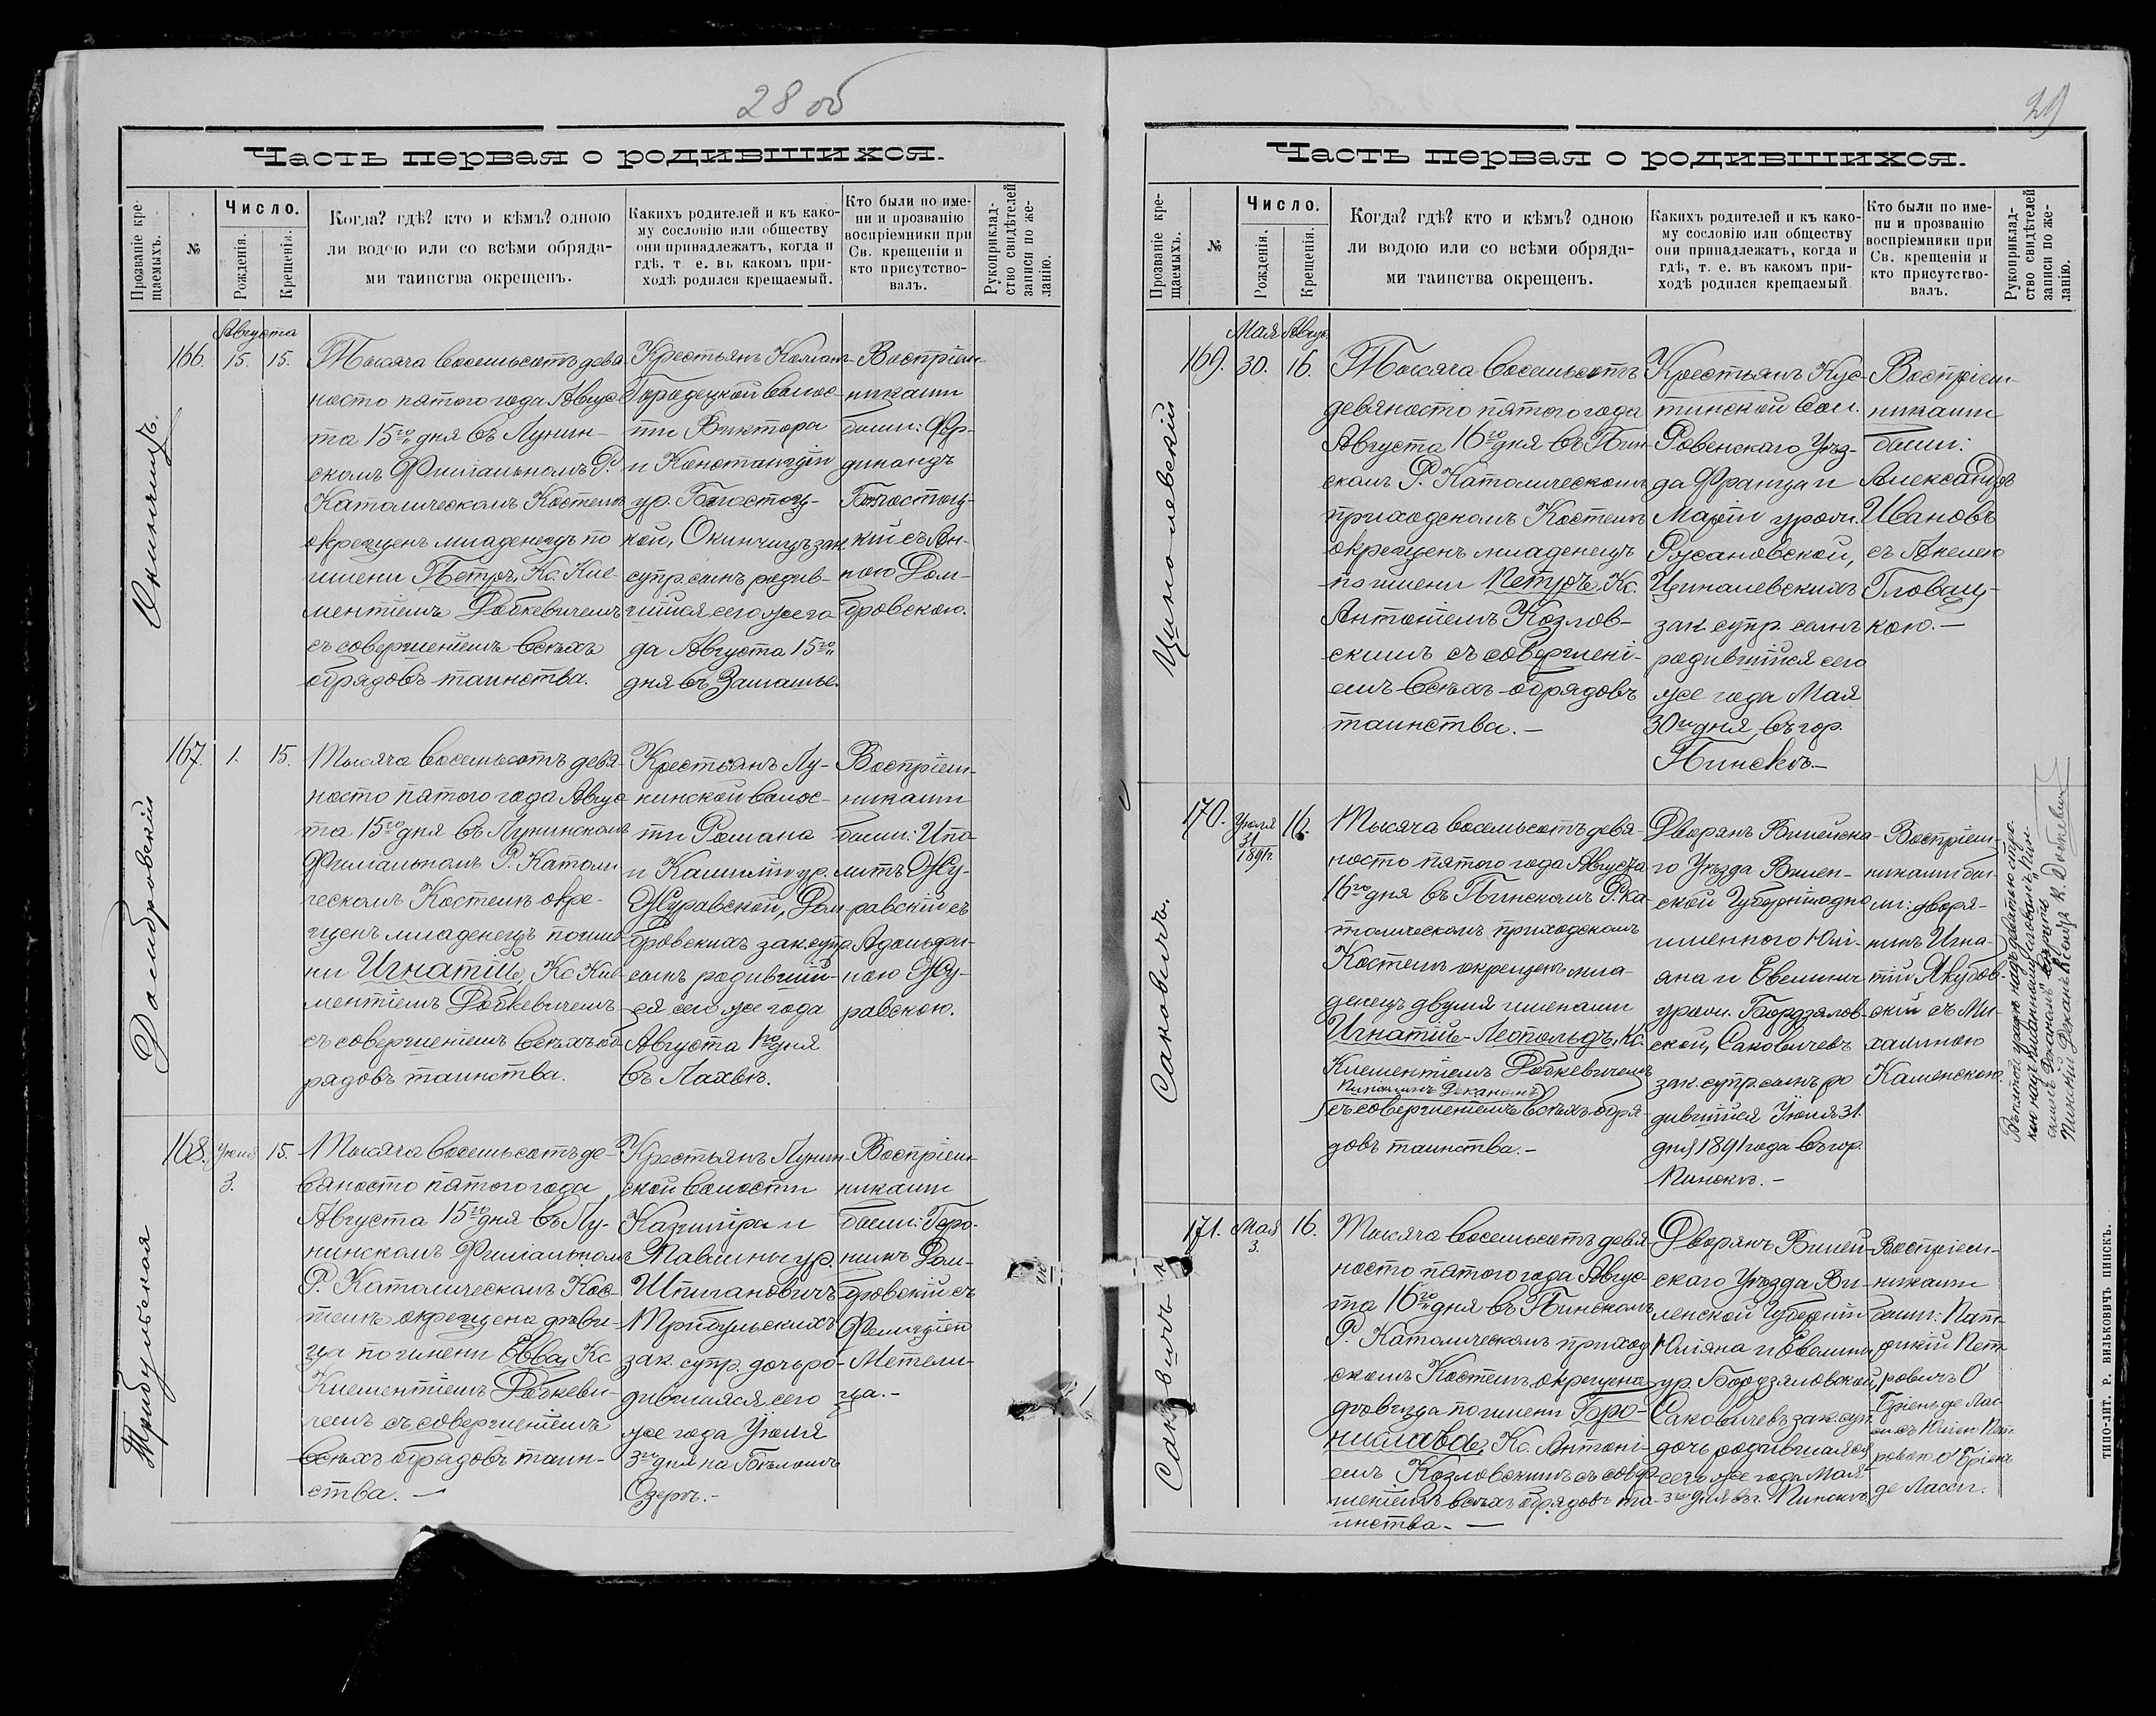 28 об
Часть первая о родившихся.
Прозваніе кре-
щаемыхъ.
№
Число.
Рожденія.
Крещенія.
Когда? гдѣ? кто и кѣмъ? одною
ли водою или со всѣми обряда-
ми таинства окрещенъ.
Какихъ родителей и къ како-
му сословію или обществу
они принадлежатъ, когда и
гдѣ, т. е. въ какомъ при-
ходѣ родился крещаемый.
Кто были по име-
ни и прозванію
воспріемники при
Св. крещеніи и
кто присутство-
валъ.
Рукоприклад-
ство свидѣтелей
записи по же-
ланію.
Окинчицъ.
166.
Августа
15. 15.
Тысяча восемьсотъ девя
носто пятого года Авгус-
та 15го дня въ Лунин-
скомъ Филіальномъ Р.
Католическомъ Костелѣ
окрещенъ младенецъ по
имени Петръ, Кс. Кле-
ментіемъ Добкевичемъ
съ совершеніемъ всѣхъ
обрядовъ таинства.
Крестьянъ
Городецкой волос-
ти Виктора
и Констанціи
ур. Бѣлостоц-
кой, Окинчицъ зак
супр. сынъ родив-
шійся сего же го
да Августа 15го
дня въ
Воспріем-
никами
были: Фер-
динандъ
Бѣлостоц-
кій съ Ан-
ною Дом-
бровскою.
Домбровскій
167. 1. 15.
Тысяча восемьсотъ девя-
носто пятого года Авгус
та 15го дня въ Лунинскомъ
Филіальномъ Р. Католи
ческомъ Костелѣ окре-
щенъ младенецъ по име
ни Игнатій, Кс Кле-
ментіемъ Добкевичемъ
съ совершеніемъ всѣхъ об-
рядовъ таинства.
Крестьянъ Лу-
нинской волос-
ти Романа
и Камиліи ур.
Журавской, Дом-
бровскихъ зак. супр
сынъ родившій-
ся сего же года
Августа 1го дня
въ Лахвѣ.
Воспріем-
никами
были: Ипо
литъ Жу-
равскій съ
Адольфи-
ною Жу-
равскою.
Трибульская
168. Іюля 15.
3.
Тысяча восемьсотъ де-
вяносто пятого года
Августа 15го дня въ Лу-
нинскомъ Филіальномъ
Р. Католическомъ Кос-
телѣ окрещена дѣви-
ца по имени Евва, Кс
Клементіемъ Добкеви-
чемъ съ совершеніемъ
всѣхъ обрядовъ таин-
ства. —
Крестьянъ Лунин-
ской волости
Казиміра и
Павлины ур.
Шпигановичъ
Трибульскихъ
зак. супр. дочь ро-
дившаяся сего
же года Іюля
3го дня на Бѣломъ
Озерѣ.-
Воспріем
никами
были: Геро-
нимъ Дом-
бровскій съ
Фелиціею
Метели-
ца.-
29
Часть первая о родившихся.
Прозваніе кре-
щаемыхъ.
№
Число.
Рожденія.
Крещенія.
Когда? гдѣ? кто и кѣмъ? одною
ли водою или со всѣми обряда-
ми таинства окрещенъ.
Какихъ родителей и къ како-
му сословію или обществу
они принадлежатъ, когда и
гдѣ, т. е. въ какомъ при-
ходѣ родился крещаемый
Кто были по име-
ни и прозванію
воспріемники при
Св. крещеніи и
кто присутство-
валъ.
Рукоприклад-
ство свидѣтелей
записи по же-
ланію.
Циналевскій
Мая Авгус.
169. 30. 16.
Тысяча восемьсотъ
девяносто пятого года
Августа 16го дня въ Пин-
скомъ Р. Католическомъ
приходскомъ Костелѣ
окрещенъ младенецъ
по имени Петръ, Кс.
Антоніемъ Козлов-
скимъ съ совершені-
емъ всѣхъ обрядовъ
таинства. —
Крестьянъ Кус-
тинской вол.
Ровенскаго Уѣз-
да Франца и
Маріи урож.
Русановской,
Циналевскихъ
зак. супр. сынъ
родившійся сего
же года Мая
30го дня въ гор.
Пинскѣ.—
Воспріем-
никами
были:
Александръ
Ивановъ
съ Анелею
Гловац-
кою.—
Саковичъ.
170. Іюля 16.
31
1891г.
Тысяча восемьсотъ девя-
носто пятого года Августа
16го дня въ Пинскомъ Р. Ка
толическомъ приходскомъ
Костелѣ окрещенъ мла-
денецъ двумя именами
Игнатій-Леопольдъ, Кс.
Клементіемъ Добкевичемъ
Пинскимъ Деканомъ
съ совершеніемъ всѣхъ обря-
довъ таинства.—
Дворянъ Вилейска-
го Уѣзда Вилен-
ской Губерніи одно
именного Юлі-
ана и Евелины
урож. Бордзилов-
ской, Саковичевъ
зак. супр. сынъ ро
дившійся Іюля 31.
дня 1891 года въ гор.
Пинскѣ.—
Воспріем-
никами бы-
ли: дворя-
нинъ Игна-
тій Якубов-
скій съ Ми-
халиною
Каменскою.
Пинскій Деканъ Ксендзъ К. Добкевичъ
Саковичъ
171. Мая 16.
3.
Тысяча восемьсотъ девя
носто пятого года Авгус-
та 16го дня въ Пинскомъ
Р. Католическомъ приход
скомъ Костелѣ окрещена
дѣвица по имени Бро-
нислава, Кс. Антоні-
емъ Козловскимъ съ совер-
шеніемъ всѣхъ обрядовъ та-
инства.—
Дворянъ Вилей-
скаго Уѣзда Ви-
ленской Губерніи
Юліяна и Евелины
ур. Бордзиловской,
Саковичевъ зак. суп.
дочь родившаяся
сего же года Мая
3го дня въ г. Пинскѣ.
Воспріем-
никами
были: Пат-
рикій Пет
ровичъ О'
Бріенъ де Лас
си съ Юліею Пет-
ровою О'Бріенъ
де Ласси.
ТИПО-ЛИТ. Р. ВИЛЬКОВИЧЪ ПИНСКЪ.